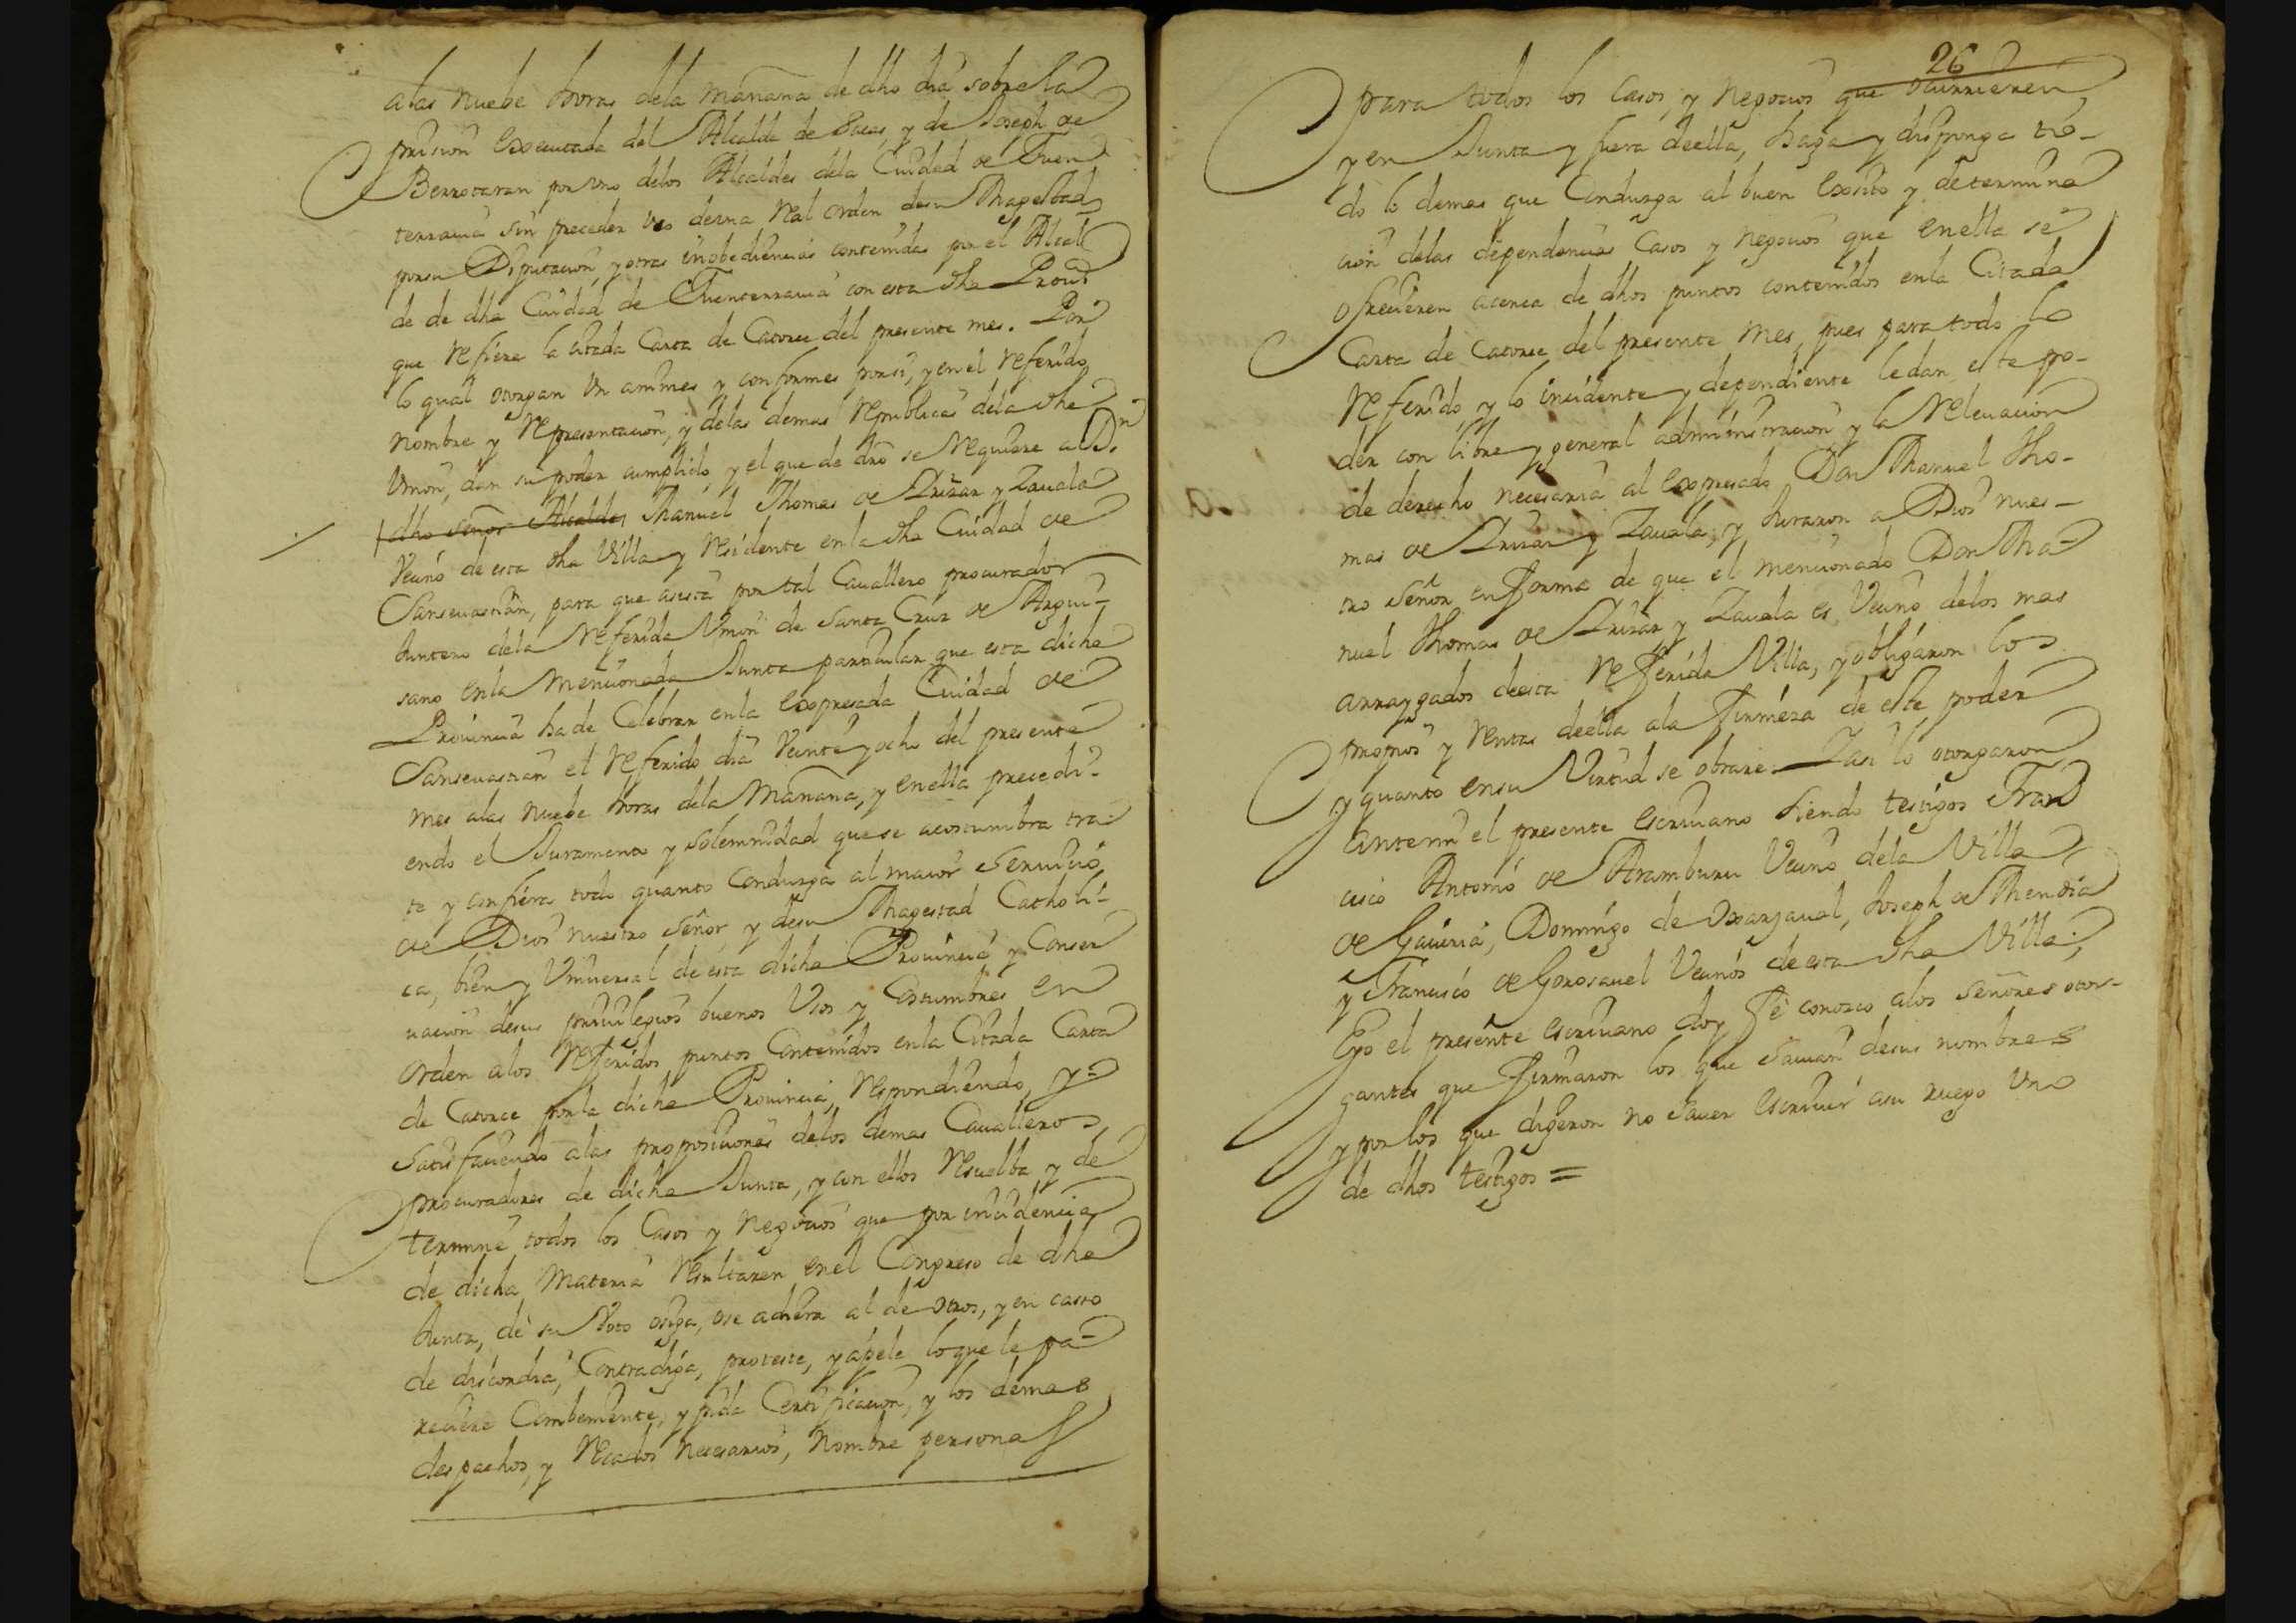 alas nuebe horas dela mañana de dho dia sobre la
prision executada del Alcalde de Sacas, y de Joseph de
Berrotaran por uno delos Alcaldes dela Ciudad de Fuen
terrauia sin preceder uso de una Real orden de su Magestad
por su Diputacion, y otras inobediencias contenidas por el Alcal
de de dha Ciudad de Fuenterrauia con esta dha Prou.ª
que refiere la citada Carta de Catorce del presente mes. Por
lo qual otorgan un animes y conformes por si, y en el referido
nombre y representacion, y delas demas republicas dela dha
Union, dan su poder cumplido, y el que de dro se requiere al Dn
dho señor Alcalde Manuel Thomas de Irizar y Zauala
Vecino de esta dha Villa y residente en la dha Ciudad de
Sanseuastian, para que asista por tal Cauallero procurador
Juntero dela referida Union de Santa Cruz de Argui-
sano en la mencionada Junta particular que esta dicha
Prouincia ha de Celebrar en la expresada Ciudad de
Sanseuastian el referido dia Veinte y ocho del presente
mes alas nuebe horas dela mañana, y en ella precedi-
endo el Juramento y solemnidad que se acostumbra tra-
te y confiera todo quanto conduzga al maior Seruicio
de Dios nuestro Señor y de su Magestad Catholi-
ca, bien y Uniuersal de esta dicha Prouincia y Conser
uacion de sus priuilegios buenos Usos y Costumbres en
orden alos referidos puntos Contenidos en la Citada Carta
de Catorce por la dicha Prouincia, respondiendo, y
satisfaciendo alas proposiciones delos demas Caualleros
procuradores de dicha Junta, y con ellos resuelba y de
termine todos los Casos y negocios que por incidencia
de dicha materia resultaren en el Congreso de dha
Junta, de su Voto o siga, o se adiera al de otros, y en casso
de discordia, Contradiga, proteste, y apele lo que le pa-
reciere Combeniente, y pida Certificacion, y los demas
despachos, y recados necesarios, nombre personas
26
para todos los Casos, y negocios que ocurrieren
y en Junta y fuera de ella, haga y disponga to-
do lo demas que Conduzga al buen exsito y determina
cion delas dependencias Casos y negocios que en ella se
ofrecieren acerca de dhos puntos contenidos en la Citada
Carta de Catorce del presente mes, pues para todo lo
referido, y lo incidente y dependiente le dan este po-
der con libre y general administracion y la releuacion
de derecho necesaria al expresado Don Manuel Tho-
mas de Irizar y Zauala, y Juraron a Dios nues-
tro Señor en forma de que el mencionado Don Ma-
nuel Thomas de Irizar y Zauala es Vecino delos mas
arraygados de esta referida Villa, y obligaron los
propios y rentas de ella ala firmeza de este poder
y quanto en su Virtud se obrare. Y asi lo otorgaron
ante mi el presente escriuano siendo testigos Fran
cisco Antonio de Aramburu Vecino dela Villa
de Gauiria, Domingo de Oxanjaual, Joseph de Mendia
y Francisco de Gorosauel Vecinos de esta dha Villa;
E yo el presente escriuano doy fe conozco alos señores otor-
gantes que firmaron los que sauian de sus nombres
y por los que digeron no sauer escriuir a su ruego uno
de dhos testigos =